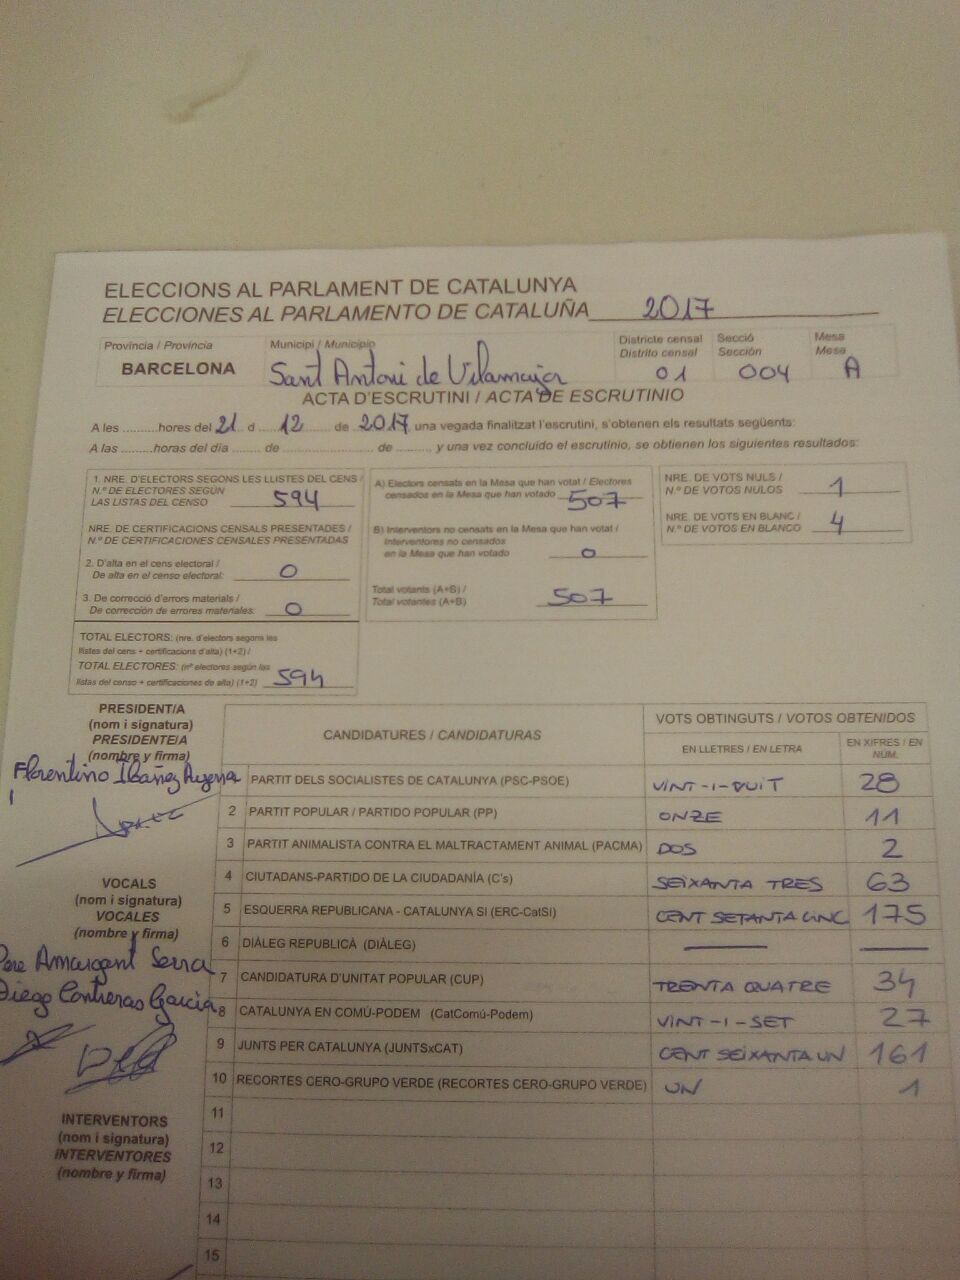 ELECCIONS AL PARLAMENT DE CATALUNYA
ELECCIONES AL PARLAMENTO DE CATALUÑA 2017
Província / Provincia Municipi / Municipio Districte censal Secció Mesa
Distrito censal Sección Mesa
BARCELONA Sant Antoni de Vilamajor 01 004 A
ACTA D'ESCRUTINI / ACTA DE ESCRUTINIO
A les ..........hores del 21 d 12 de 2017 una vegada finalitzat l'escrutini, s'obtenen els resultats següents:
A las ..........horas del día ....... de .............................. de ........., y una vez concluido el escrutinio, se obtienen los siguientes resultados:
1. NRE. D'ELECTORS SEGONS LES LLISTES DEL CENS /
N.º DE ELECTORES SEGÚN
LAS LISTAS DEL CENSO 594
NRE. DE CERTIFICACIONS CENSALS PRESENTADES /
N.º DE CERTIFICACIONES CENSALES PRESENTADAS
2. D'alta en el cens electoral /
De alta en el censo electoral: 0
3. De correcció d'errors materials /
De corrección de errores materiales: 0
TOTAL ELECTORS: (nre. d'electors segons les
llistes del cens + certificacions d'alta) (1+2) /
TOTAL ELECTORES: (nº electores según las
listas del censo + certificaciones de alta) (1+2) 594
A) Electors censats en la Mesa que han votat / Electores
censados en la Mesa que han votado 507
B) Interventors no censats en la Mesa que han votat /
Interventores no censados
en la Mesa que han votado 0
Total votants (A+B) /
Total votantes (A+B) 507
NRE. DE VOTS NULS /
N.º DE VOTOS NULOS 1
NRE. DE VOTS EN BLANC /
N.º DE VOTOS EN BLANCO 4
PRESIDENT/A
(nom i signatura)
PRESIDENTE/A
(nombre y firma)
Florentino Ibañez
VOCALS
(nom i signatura)
VOCALES
(nombre y firma)
Pere Amargant Serra
Diego Contreras García
INTERVENTORS
(nom i signatura)
INTERVENTORES
(nombre y firma)
CANDIDATURES / CANDIDATURAS VOTS OBTINGUTS / VOTOS OBTENIDOS
EN LLETRES / EN LETRA EN XIFRES / EN NÚM.
1 PARTIT DELS SOCIALISTES DE CATALUNYA (PSC-PSOE) VINT-I-VUIT 28
2 PARTIT POPULAR / PARTIDO POPULAR (PP) ONZE 11
3 PARTIT ANIMALISTA CONTRA EL MALTRACTAMENT ANIMAL (PACMA) DOS 2
4 CIUTADANS-PARTIDO DE LA CIUDADANÍA (C's) SEIXANTA TRES 63
5 ESQUERRA REPUBLICANA - CATALUNYA SÍ (ERC-CatSí) CENT SETANTA CINC 175
6 DIÀLEG REPUBLICÀ (DIÀLEG)
7 CANDIDATURA D'UNITAT POPULAR (CUP) TRENTA QUATRE 34
8 CATALUNYA EN COMÚ-PODEM (CatComú-Podem) VINT-I-SET 27
9 JUNTS PER CATALUNYA (JUNTSxCAT) CENT SEIXANTA UN 161
10 RECORTES CERO-GRUPO VERDE (RECORTES CERO-GRUPO VERDE) UN 1
11
12
13
14
15